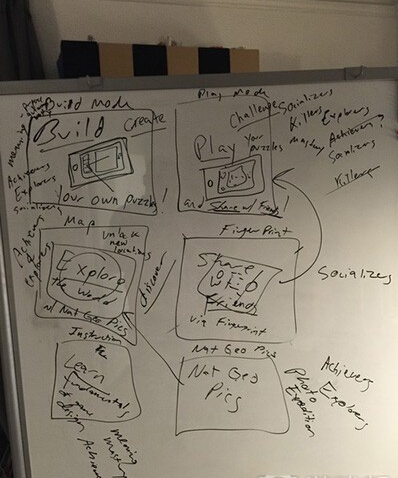 Build Mode
Build
Create
Your own puzzles!
meaning
Achievers
Explorers
Socializers
Play Mode
Challenge
Play
Your
puzzles
and Share w/ Friends!
Socializers
Killers Explorers
mastery Achievers?
Socializers
Killers
Map
Unlock
new
locations
Explore
the world
w/ Nat Geo Pics
Achievers
Explorers
discover
Finger Print
Share
w/
Friends
via Fingerprint
Socializers
Instruction
Learn
the
fundamentals
of
design
meaning
mastery
Achievers
Nat Geo Pics
Nat Geo
Pics
Photo
Expedition
Achievers
Explorers